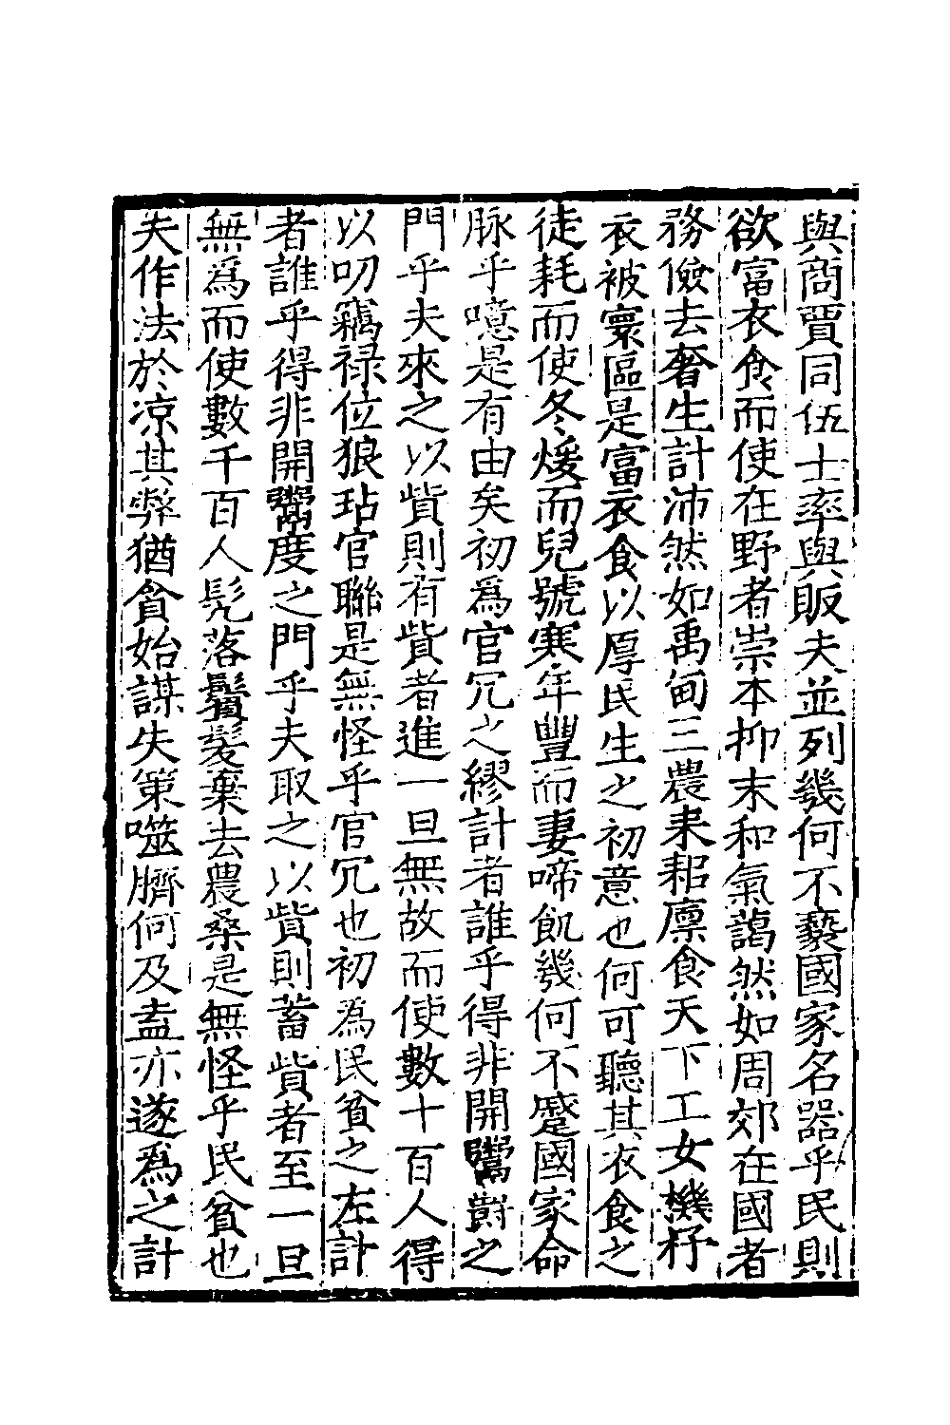 與商賈同伍士率與販夫並列幾何不褻國家名器乎民則
欲富衣食而使在野者崇本抑末和氣藹然如周郊在國者
務儉去奢生計沛然如禹甸三農耒耜廩食天下工女機杼
衣被寰區是富衣食以厚民生之初意也何可聽其衣食之
徒耗而使冬煖而兒號寒年豐而妻啼飢幾何不蹙國家命
脉乎噫是有由矣初為官冗之繆計者誰乎得非開鬻爵之
門乎夫來之以貲則有貲者進一旦無故而使數十百人得
以叨竊祿位狼玷官聯是無怪乎官冗也初為民貧之左計
者誰乎得非開鬻度之門乎夫取之以貲則蓄貲者至一旦
無為而使數千百人髡落鬚髮棄去農桑是無怪乎民貧也
夫作法於凉其弊猶貪始謀失策噬臍何及盍亦遂為之計